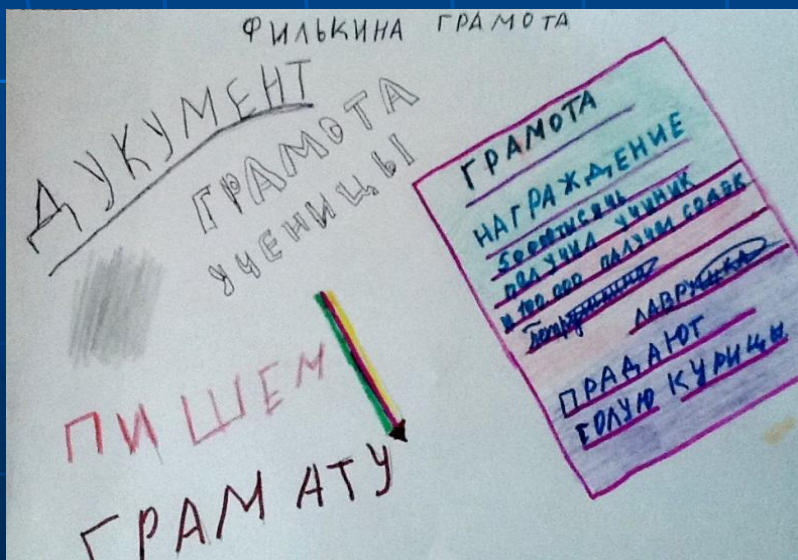 ФИЛЬКИНА ГРАМОТА
ДУКУМЕНТ
ГРАМОТА
УЧЕНИЦЫ
ПИШЕМ
ГРАМАТУ
ГРАМОТА
НАГРАЖДЕНИЕ
ПОЛУЧИЛ УЧИНИК
И 100.000 ПОЛУЧИЛ
ПРАДАЮТ
ГОЛУЮ КУРИЦЫ